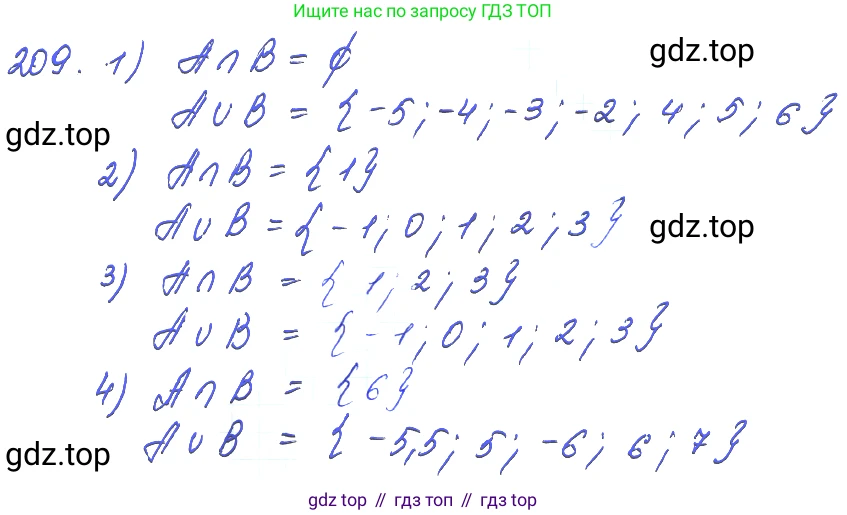 Ищите нас по запросу ГДЗ ТОП
209. 1) A∩B = ∅
gdz.top
A∪B = {-5; -4; -3; -2; 4; 5; 6}
gdz.top
2) A∩B = {1}
A∪B = {-1; 0; 1; 2; 3}
gdz.top
3) A∩B = {1; 2; 3}
A∪B = {-1; 0; 1; 2; 3}
4) A∩B = {6}
A∪B = {-5,5; 5; -6; 6; 7}
gdz.top
gdz.top
gdz top // гдз топ // gdz top